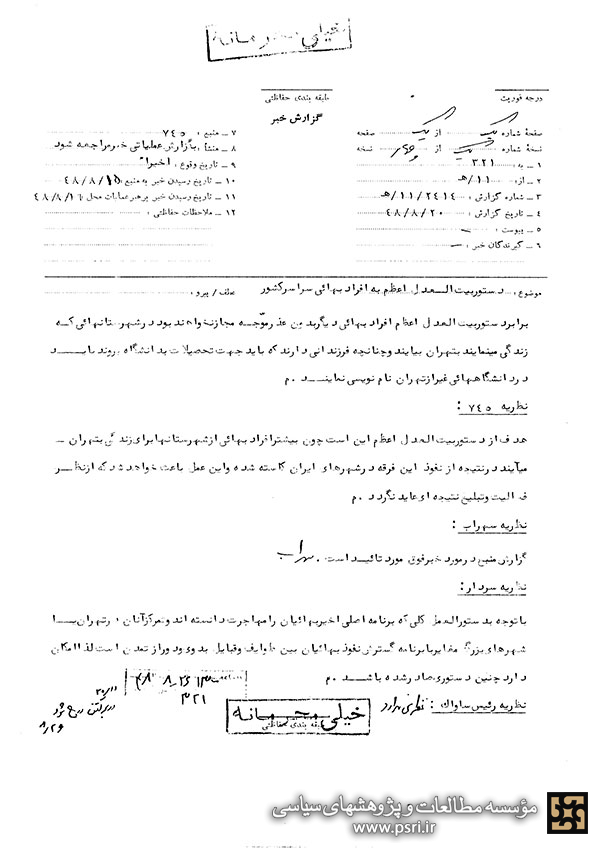 خیلی محرمانه
درجه فوریت
طبقه بندی حفاظتی
گزارش خبر
صفحه شماره یک از یک صفحه
نسخه شماره یک از چهار نسخه
۱ – به : ۳۲۱
۲ – از : ۱۱/هـ
۳ – شماره گزارش : ۱۱/۲۴۱۴/هـ
۴ – تاریخ گزارش : ۴۸/۸/۲۰
۵ – پیوست : –
۶ – گیرندگان خبر : –
۷ – منبع : ۷۴۵
۸ – منشأ : بگزارش عملیاتی خبر مراجعه شود
۹ – تاریخ وقوع : اخیرا
۱۰ – تاریخ رسیدن خبر به منبع : ۴۸/۸/۱۵
۱۱ – تاریخ رسیدن خبر برهبر عملیات محل : ۴۸/۸/۱۶
۱۲ – ملاحظات حفاظتی :
موضوع : دستور بیت العدل اعظم به افراد بهائی سراسر کشور
عطف / پیرو :
برابر دستور بیت العدل اعظم افراد بهائی دیگر بدون عذر موجه مجاز نخواهند بود در شهرستانهائی که
زندگی مینمایند بتهران بیایند و چنانچه فرزندانی دارند که باید جهت تحصیلات بدانشگاه بروند بایـد
در دانشگاههائی غیر از تهران نام نویسی نماینـد . م
نظریه ۷۴۵ :
هدف از دستور بیت العدل اعظم این است چون بیشتر افراد بهائی از شهرستانها برای زندگی بتهران –
میآیند در نتیجه از نفوذ این فرقه در شهرهای ایران کاسته شده و این عمل باعث خواهد شد که از نظـر
فعالیت و تبلیغ نتیجه ای عاید نگردد . م
نظریه سهراب :
گزارش منبع در مورد خبر فوق مورد تائید است . سهراب
نظریه سردار :
با توجه بدستورالعمل کلی که برنامه اصلی اخیر بهائیان را مهاجرت دانسته اند و تمرکز آنان در تهران یـا
شهرهای بزرگ مغایر با برنامه گسترش نفوذ بهائیان بین طوایف و قبایل بدوی و دور از تمدن است لذا امکان
دارد چنین دستوری صادر شده باشد . م
نظریه رئیس ساواک : نظری ندارد
۳۲۱
خیلی محرمانه
طبقه بندی حفاظتی
۸/۲۶
مؤسسه مطالعات و پژوهشهای سیاسی
www.psri.ir